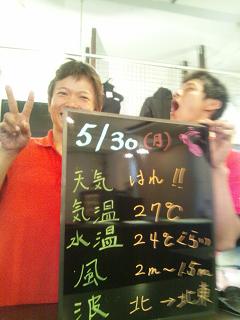 5/30(月)
天気 はれ!!
気温 27℃
水温 24℃ 25mm
風 2m~1.5m
波 北→北東